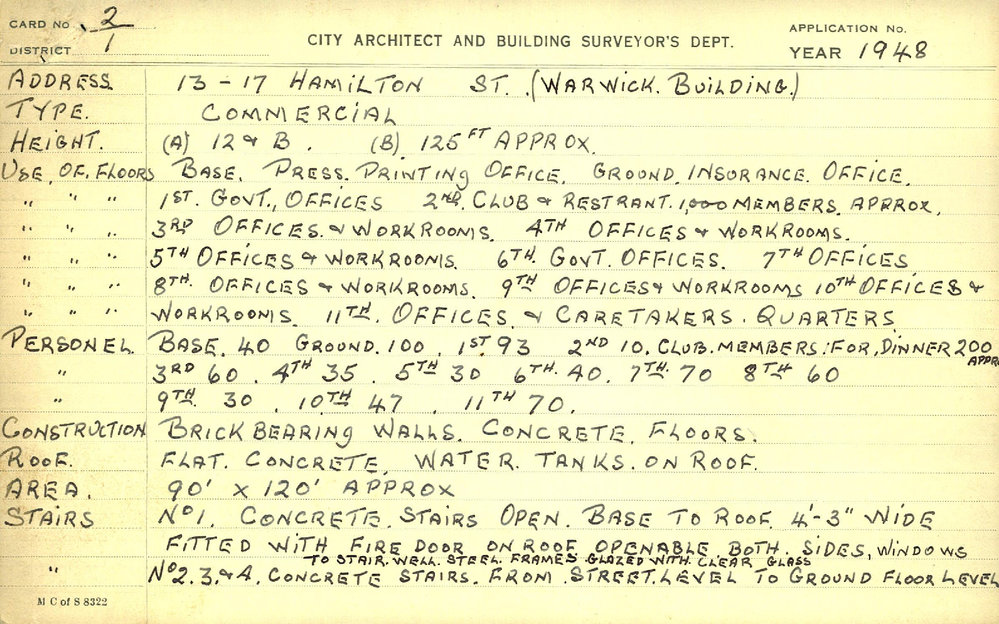 CARD No 2/1
DISTRICT
CITY ARCHITECT AND BUILDING SURVEYOR'S DEPT.
APPLICATION No.
YEAR 1948
ADDRESS. 13 - 17 HAMILTON ST. (WARWICK. BUILDING.)
TYPE. COMMERCIAL
HEIGHT. (A) 12 & B. (B) 125 FT APPROX.
USE. OF. FLOORS BASE. PRESS. PRINTING OFFICE. GROUND. INSURANCE. OFFICE.
" " " 1ST. GOVT., OFFICES 2ND. CLUB & RESTRANT. 1,000 MEMBERS. APPROX.
" " " 3RD OFFICES. & WORKROOMS. 4TH OFFICES & WORKROOMS.
" " " 5TH OFFICES & WORKROOMS. 6TH. GOVT. OFFICES. 7TH OFFICES
" " " 8TH. OFFICES & WORKROOMS. 9TH OFFICES & WORKROOMS 10TH OFFICES &
" " " WORKROOMS. 11TH. OFFICES. & CARETAKERS. QUARTERS
PERSONEL. BASE. 40 GROUND. 100. 1ST 93 2ND 10. CLUB. MEMBERS. FOR, DINNER 200 APPR
" 3RD 60. 4TH 35. 5TH 30 6TH. 40. 7TH. 70 8TH 60
" 9TH. 30. 10TH 47. 11TH 70.
CONSTRUCTION BRICK BEARING WALLS. CONCRETE. FLOORS.
ROOF. FLAT. CONCRETE. WATER. TANKS. ON ROOF.
AREA. 90' X 120' APPROX
STAIRS No 1. CONCRETE. STAIRS OPEN. BASE TO ROOF. 4'-3" WIDE
FITTED WITH FIRE DOOR ON ROOF OPENABLE BOTH. SIDES, WINDOWS
TO STAIR. WELL. STEEL. FRAMES GLAZED WITH. CLEAR GLASS
" No 2. 3. & 4. CONCRETE STAIRS. FROM. STREET. LEVEL TO GROUND FLOOR LEVEL
M C of S 8322